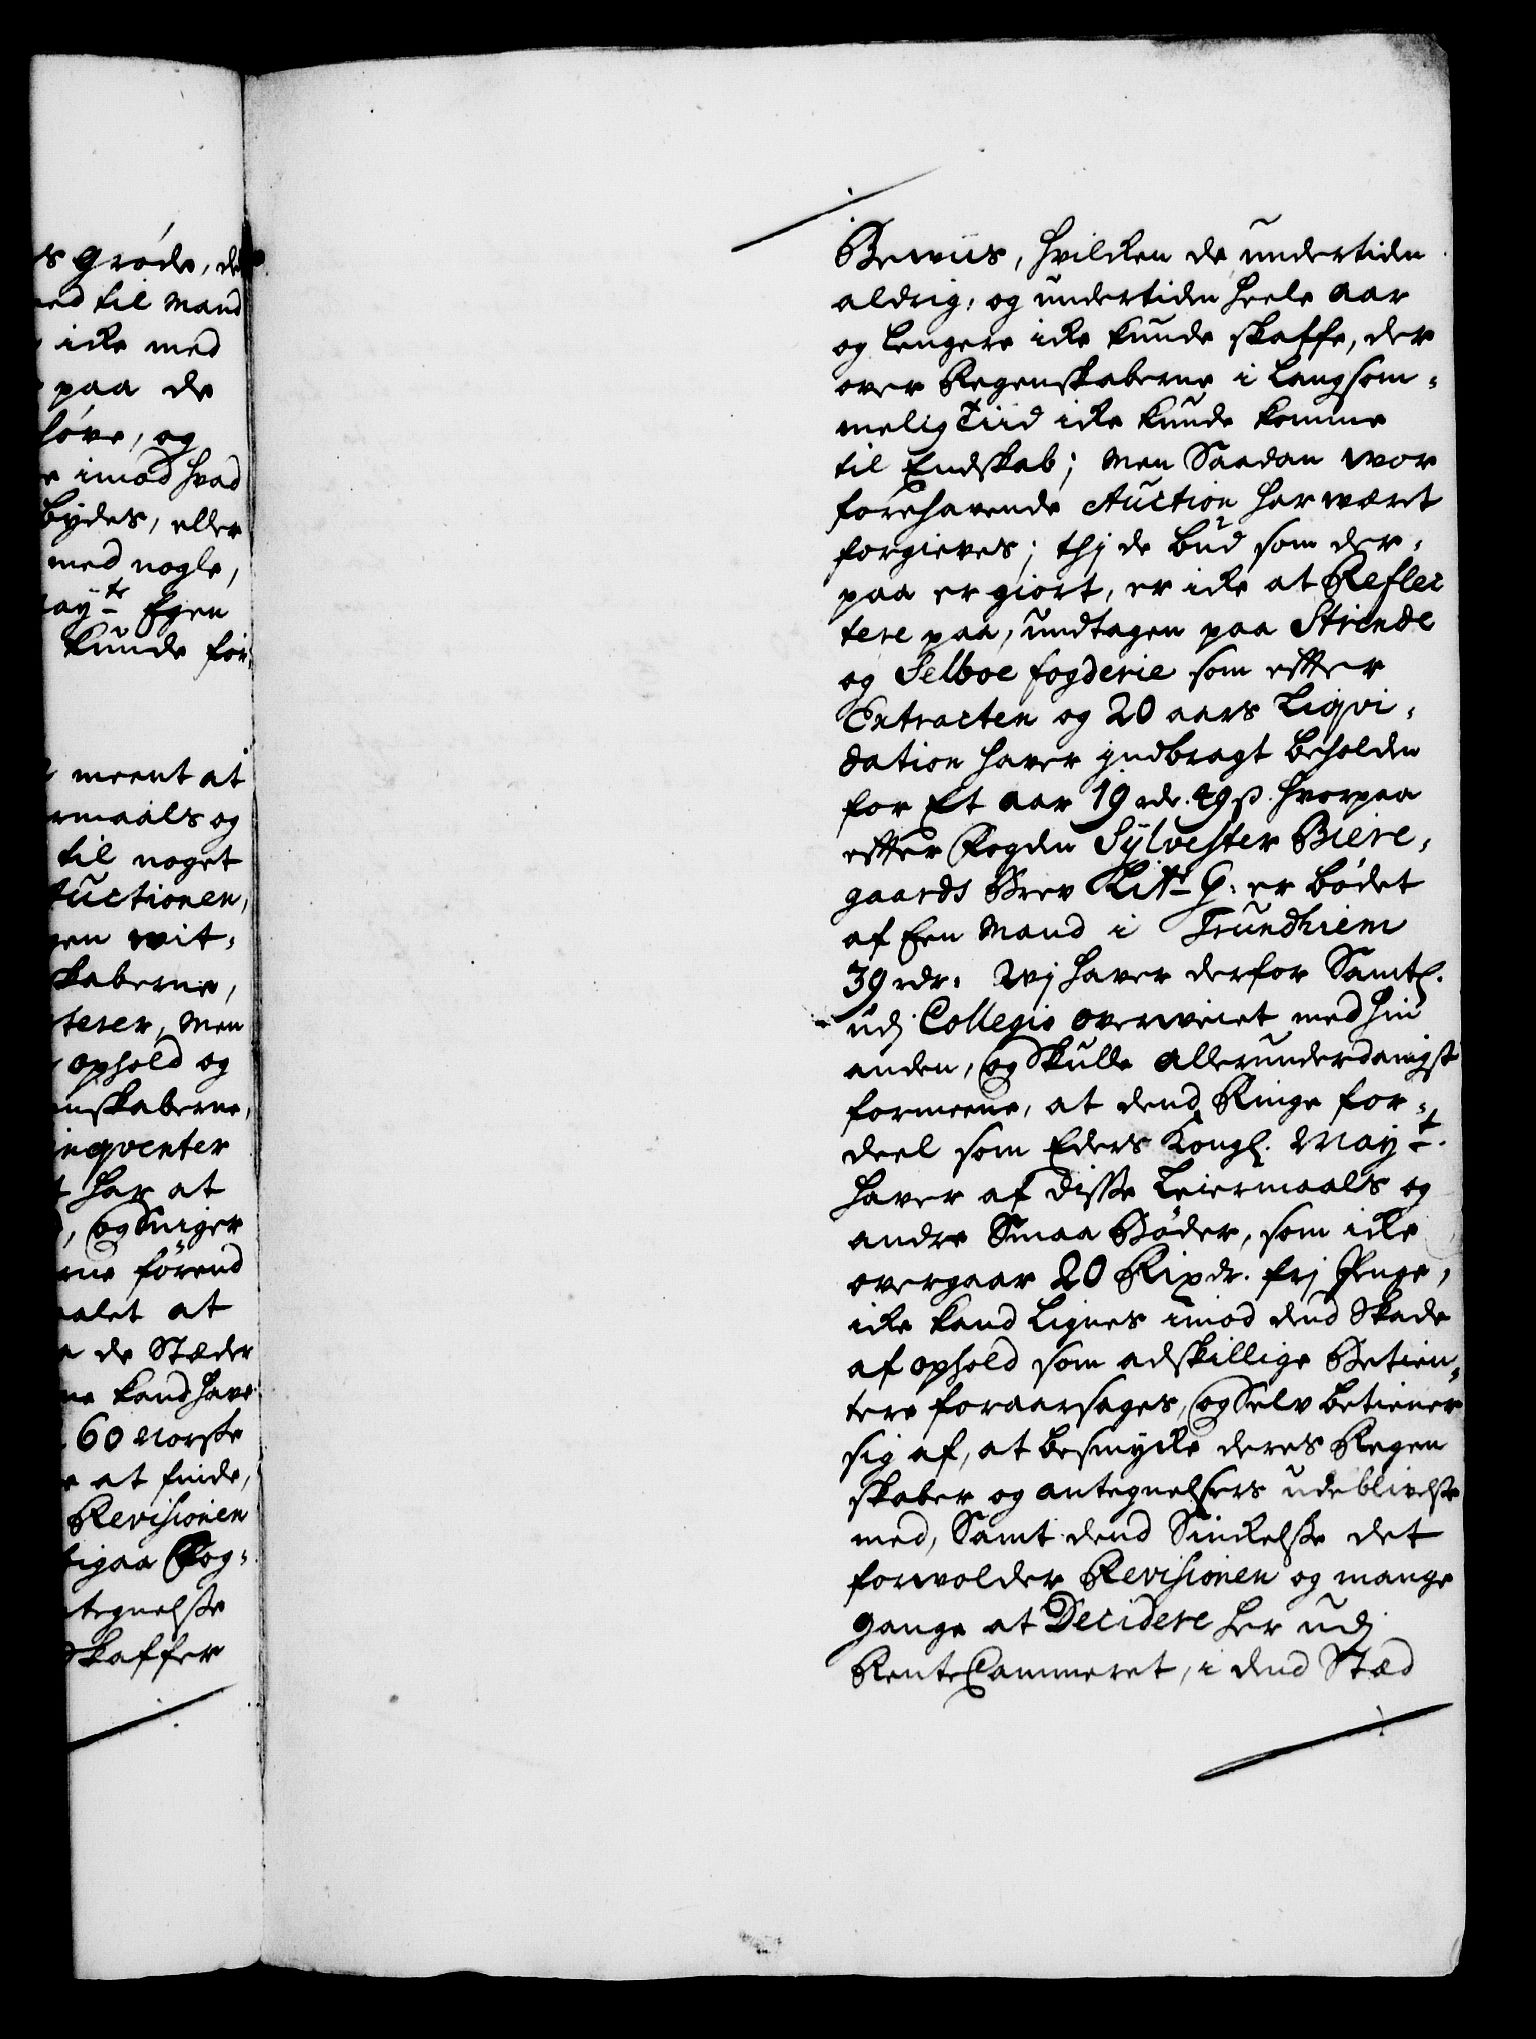 s grøde, de
ed til Mand
icke med
paa de
høre, og
e imod hvad
bydes, eller
med nogle,
Mayts Egen
kunde for
meent at
rmaals og
til noget
Auctionen,
gen wit-
skaberne,
terer, Men
ophold og
enskaberne,
inqventer
t har at
, og Sniger
rne førend
alet at
a de Stæder
ne kand have
60 Norske
e at finde,
Revisionen
tigaa Fog-
ntegnelsse
dskaffer
Bewiis, hvilcken de undertiden
aldrig, og undertiden heele aar
og lengere icke kunde skaffe, der
over Regenskaberne i langsom-
melig Tiid icke kunde komme
til Endskab; Men Saadan wor
forehavende Auction har wæret
forgieves; thj de bud som der-
paa er giort, er icke at Reflec
tere paa, undtagen paa Strinde
og Selboe fogderie som efter
Extracten og 20 aars Liqvi-
dation haver indbragt beholden
for Et aar 19 rdr. 49 ß. hvorpaa
efter Fogden Sylvester Biere-
gaards Brev Litr G: er bødet
af Een Mand i Trundhiem
39 rdr: Wj haver derfor Samtl.
udj Collegio overveiet med hin
anden, og Skulle allerunderdanigst
formeene, at dend Ringe for-
deel som Eders Kongl. Mayt.
haver af disse Leiermaals og
andre Smaa Bøder, som icke
overgaar 20 Rixdr. frj Penge,
icke kand lignes imod dend Skade
af ophold som adskillige Betien-
tere foraarsages, og Selv betiener
sig af, at besmycke deres Regen
skaber og antegnelsers udeblivelsse
med, Samt dend Sinckelsse det
forvolder Revisionen og mange
gange at Decidere her udj
RenteCammeret, i dend Stæd